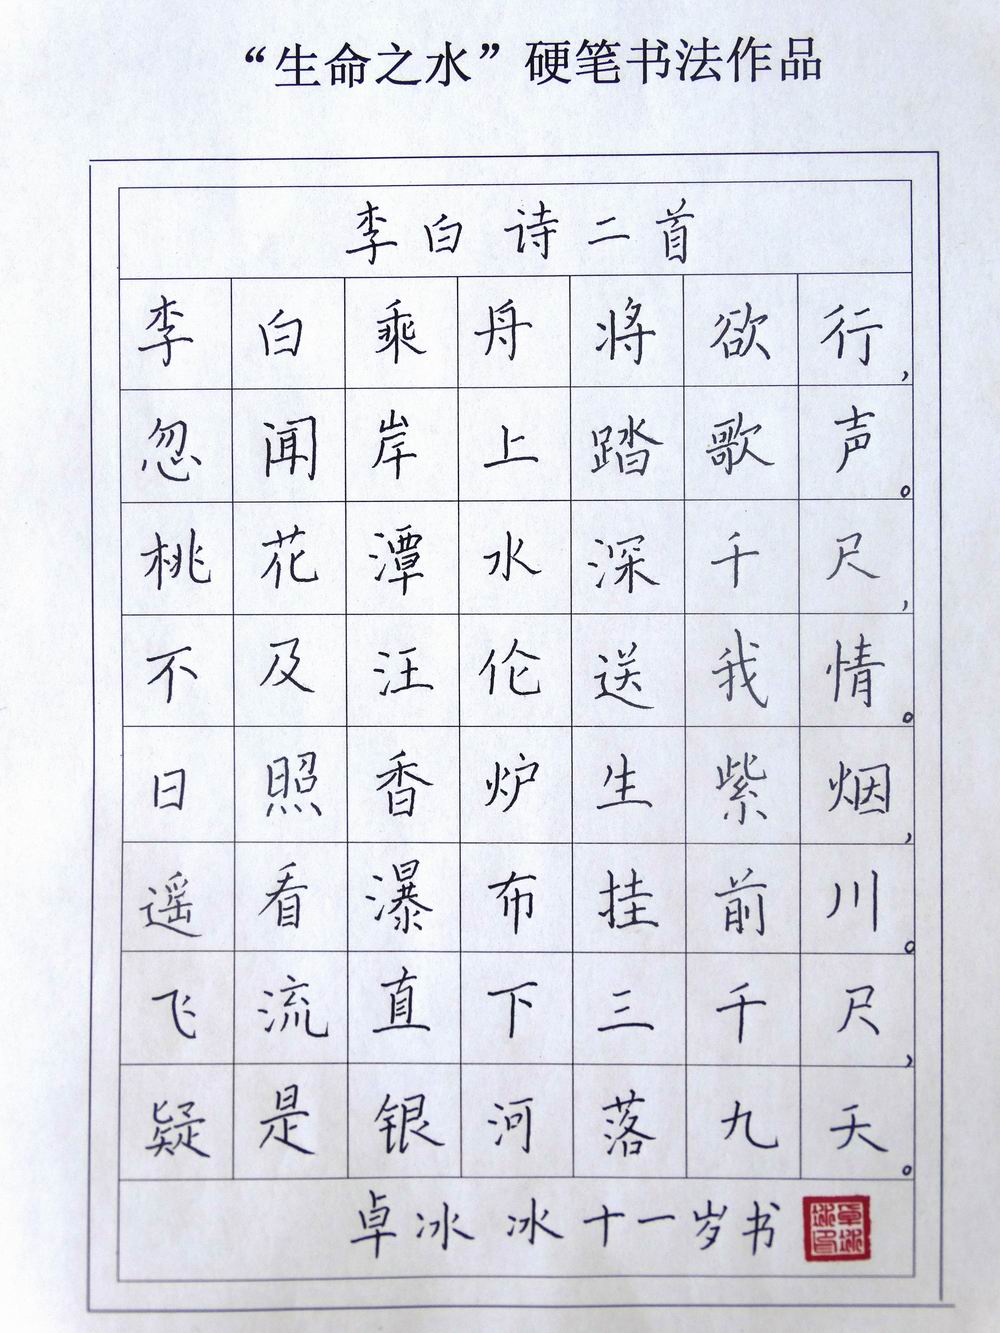 “生命之水”硬笔书法作品
李白诗二首
李白乘舟将欲行，
忽闻岸上踏歌声。
桃花潭水深千尺，
不及汪伦送我情。
日照香炉生紫烟，
遥看瀑布挂前川。
飞流直下三千尺，
疑是银河落九天。
卓冰冰十一岁书